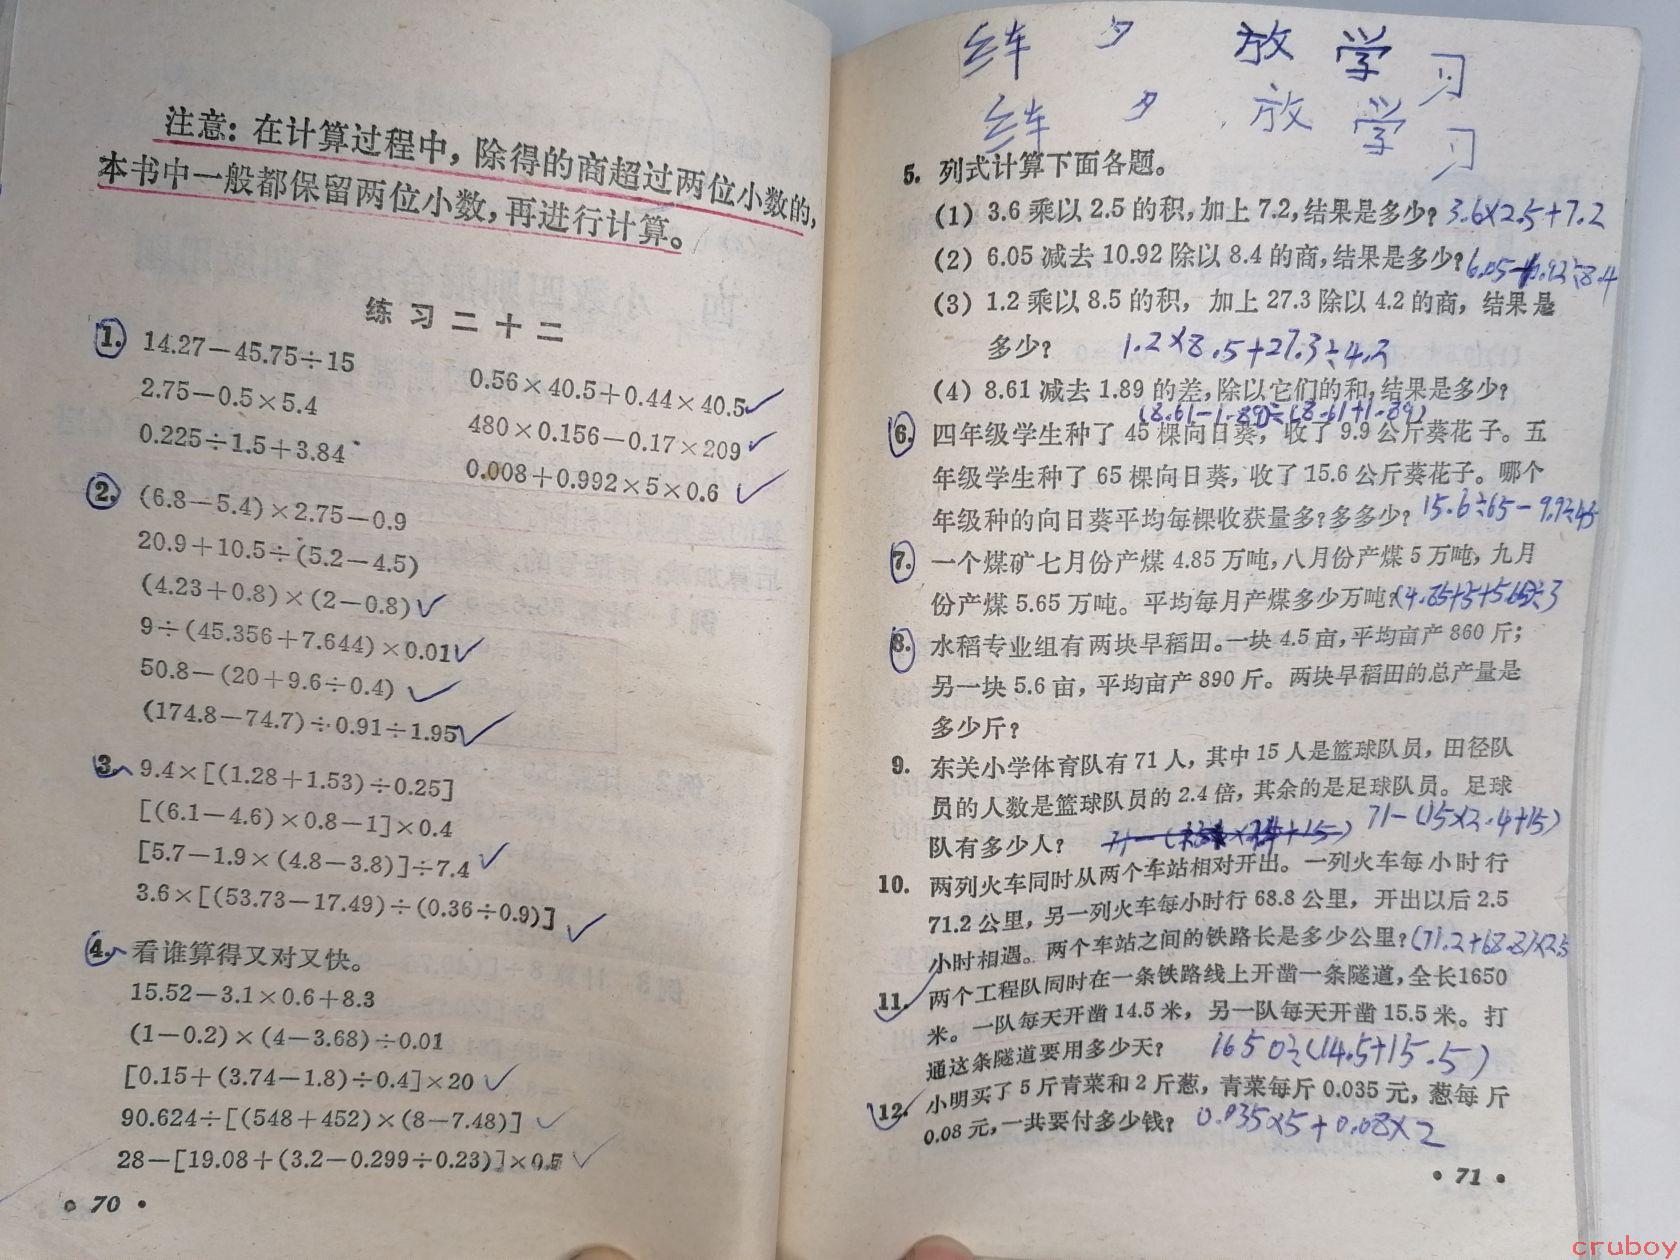 注意：在计算过程中，除得的商超过两位小数的，
本书中一般都保留两位小数，再进行计算。
练习二十二
1. 14.27－45.75÷15
0.56×40.5＋0.44×40.5
2.75－0.5×5.4
480×0.156－0.17×209
0.225÷1.5＋3.84
0.008＋0.992×5×0.6
2. (6.8－5.4)×2.75－0.9
20.9＋10.5÷(5.2－4.5)
(4.23＋0.8)×(2－0.8)
9÷(45.356＋7.644)×0.01
50.8－(20＋9.6÷0.4)
(174.8－74.7)÷0.91÷1.95
3. 9.4×[(1.28＋1.53)÷0.25]
[(6.1－4.6)×0.8－1]×0.4
[5.7－1.9×(4.8－3.8)]÷7.4
3.6×[(53.73－17.49)÷(0.36÷0.9)]
4. 看谁算得又对又快。
15.52－3.1×0.6＋8.3
(1－0.2)×(4－3.68)÷0.01
[0.15＋(3.74－1.8)÷0.4]×20
90.624÷[(548＋452)×(8－7.48)]
28－[19.08＋(3.2－0.299÷0.23)]×0.5
• 70 •
夕 放 学 习
夕 放 学 习
5. 列式计算下面各题。
(1) 3.6 乘以 2.5 的积，加上 7.2，结果是多少？ 3.6×2.5+7.2
(2) 6.05 减去 10.92 除以 8.4 的商，结果是多少？ 6.05-10.92÷8.4
(3) 1.2 乘以 8.5 的积，加上 27.3 除以 4.2 的商，结果是
多少？ 1.2×8.5+27.3÷4.2
(4) 8.61 减去 1.89 的差，除以它们的和，结果是多少？
(8.61-1.89)÷(8.61+1.89)
6. 四年级学生种了 45 棵向日葵，收了 9.9 公斤葵花子。五
年级学生种了 65 棵向日葵，收了 15.6 公斤葵花子。哪个
年级种的向日葵平均每棵收获量多？多多少？ 15.6÷65-9.9÷45
7. 一个煤矿七月份产煤 4.85 万吨，八月份产煤 5 万吨，九月
份产煤 5.65 万吨。平均每月产煤多少万吨？ (4.85+5+5.65)÷3
8. 水稻专业组有两块早稻田。一块 4.5 亩，平均亩产 860 斤；
另一块 5.6 亩，平均亩产 890 斤。两块早稻田的总产量是
多少斤？
9. 东关小学体育队有 71 人，其中 15 人是篮球队员，田径队
员的人数是篮球队员的 2.4 倍，其余的是足球队员。足球
队有多少人？ 71-(15×2.4+15)
10. 两列火车同时从两个车站相对开出。一列火车每小时行
71.2 公里，另一列火车每小时行 68.8 公里，开出以后 2.5
小时相遇。两个车站之间的铁路长是多少公里？ (71.2+68.8)×2.5
11. 两个工程队同时在一条铁路线上开凿一条隧道，全长1650
米。一队每天开凿 14.5 米，另一队每天开凿 15.5 米。打
通这条隧道要用多少天？ 1650÷(14.5+15.5)
12. 小明买了 5 斤青菜和 2 斤葱，青菜每斤 0.035 元，葱每斤
0.08 元，一共要付多少钱？ 0.035×5+0.08×2
• 71 •
cruboy